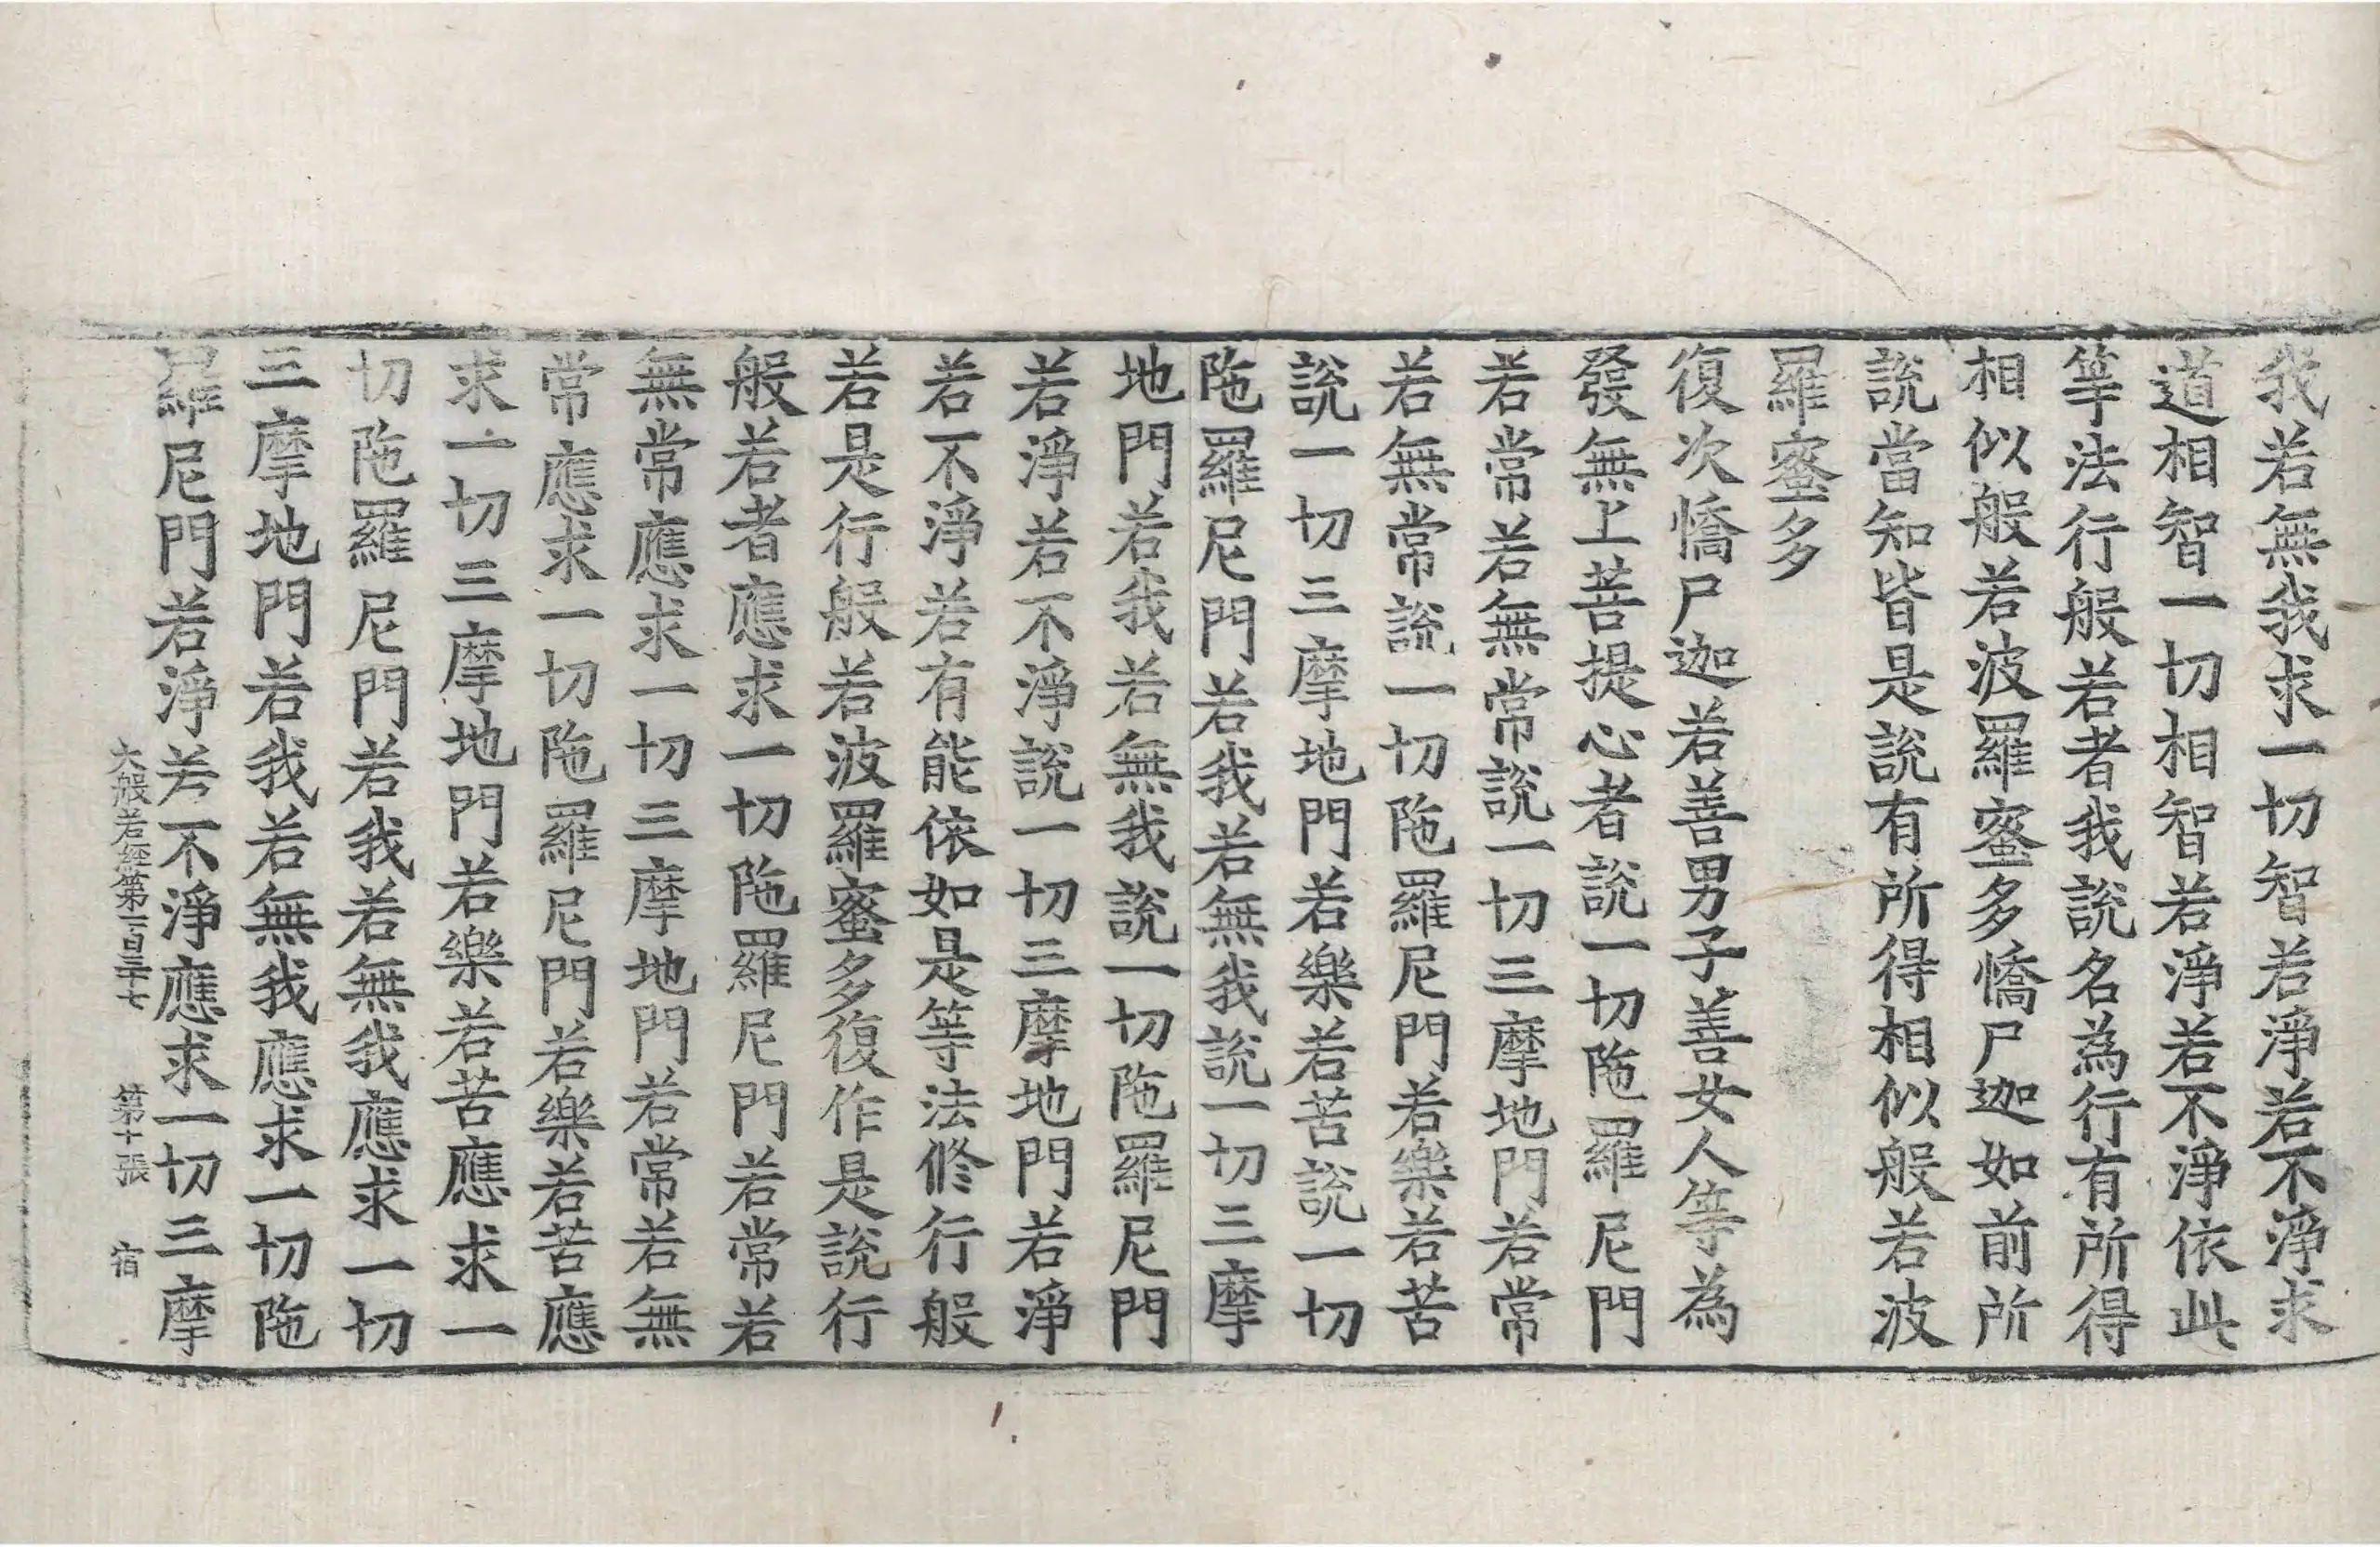 我若無我求一切智若淨若不淨求
道相智一切相智若淨若不淨依此
等法行般若者我說名為行有所得
相似般若波羅蜜多憍尸迦如前所
說當知皆是說有所得相似般若波
羅蜜多
復次憍尸迦若善男子善女人等為
發無上菩提心者說一切陁羅尼門
若常若無常說一切三摩地門若常
若無常說一切陁羅尼門若樂若苦
說一切三摩地門若樂若苦說一切
陁羅尼門若我若無我說一切三摩
地門若我若無我說一切陁羅尼門
若淨若不淨說一切三摩地門若淨
若不淨若有能依如是等法修行般
若是行般若波羅蜜多復作是說行
般若者應求一切陁羅尼門若常若
無常應求一切三摩地門若常若無
常應求一切陁羅尼門若樂若苦應
求一切三摩地門若樂若苦應求一
切陁羅尼門若我若無我應求一切
三摩地門若我若無我應求一切陁
羅尼門若淨若不淨應求一切三摩
大般若經第一百三十七 第十張 宿